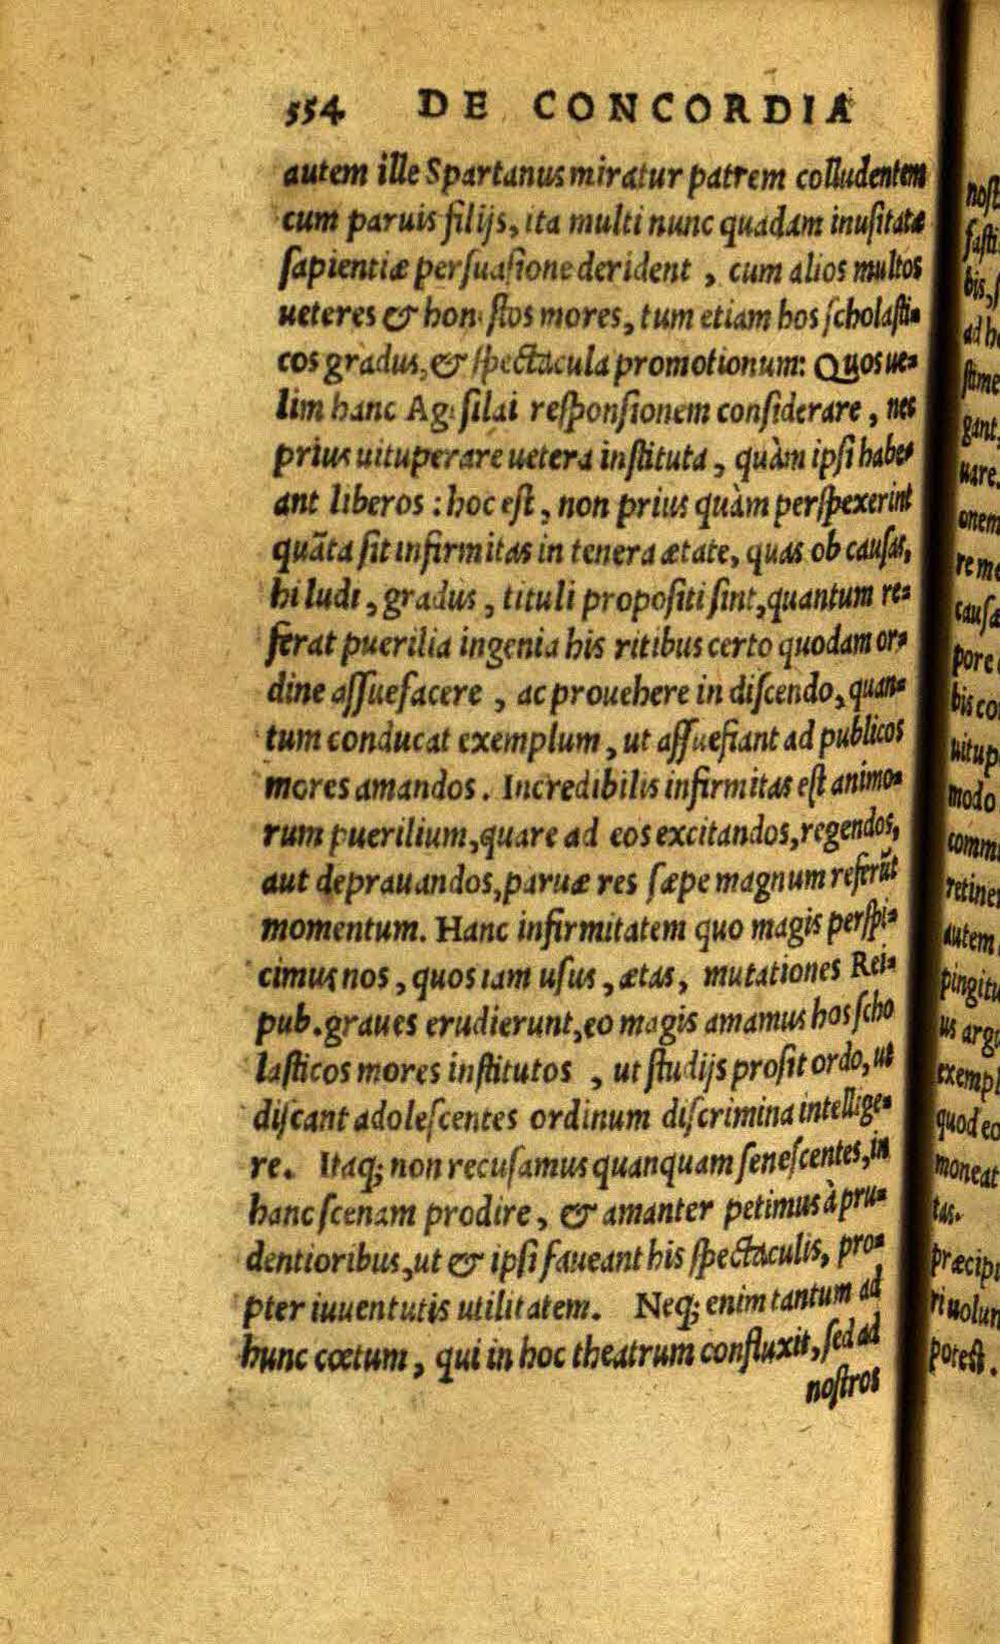 554 DE CONCORDIA
autem ille Spartanus miratur patrem colludentem
cum paruis filijs, ita multi nunc quadam inusitata
sapientiæ persuasione derident , cum alios multos
ueteres & honestos mores, tum etiam hos scholasti-
cos gradus, & spectacula promotionum: Quos ue-
lim hanc Agesilai responsionem considerare , nec
prius uituperare uetera instituta , quàm ipsi habe-
ant liberos : hoc est , non prius quàm perspexerint
quãta sit infirmitas in tenera ætate, quas ob causas,
hi ludi , gradus , tituli propositi sint, quantum re-
ferat puerilia ingenia his ritibus certo quodam or-
dine assuefacere , ac prouehere in discendo, quan-
tum conducat exemplum , ut assuefiant ad publicos
mores amandos . Incredibilis infirmitas est animo-
rum puerilium, quare ad eos excitandos, regendos,
aut deprauandos, paruæ res sæpe magnum referũt
momentum. Hanc infirmitatem quo magis perspi-
cimus nos , quos iam usus , ætas, mutationes Rei-
pub. graues erudierunt, eo magis amamus hos scho
lasticos mores institutos , ut studijs prosit ordo, ut
discant adolescentes ordinum discrimina intellige-
re. Itaq; non recusamus quanquam senescentes, in
hanc scenam prodire , & amanter petimus à pru-
dentioribus, ut & ipsi faueant his spectaculis, pro-
pter iuuentutis utilitatem. Neq; enim tantum ad
hunc cœtum , qui in hoc theatrum confluxit, sed ad
nostros